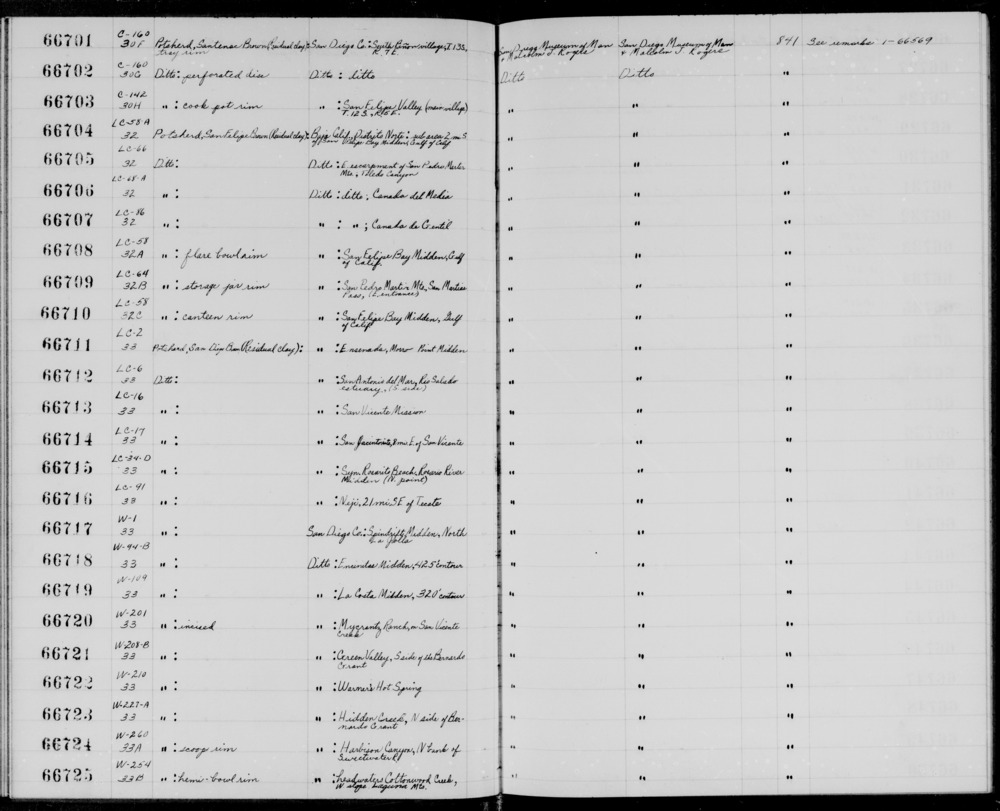 66701 C-160 30F Potsherd, Santenac Brown (Residual clay): tray rim San Diego Co: South Boton village, T 13S, R 7 E. San Diego Museum of Man & Malcolm J. Rogers San Diego Museum of Man & Malcolm J. Rogers 841 See remarks 1-66569
66702 C-160 30G Ditto: perforated disc Ditto: ditto Ditto Ditto "
66703 C-142 30H ": cook pot rim ": San Felipe Valley (main village) T.12S., R5E. " " "
66704 LC-58-A 32 Potsherd, San Felipe Brown (Residual clay): Baja Calif, Distrito Norte: sub area 2 mi S of San Felipe Bay Midden, Gulf of Calif " " "
66705 LC-66 32 Ditto: Ditto: E escarpment of San Pedro Martir Mts., Toledo Canyon " " "
66706 LC-68-A 32 ": Ditto: ditto, Canada del Media " " "
66707 LC-86 32 ": ": "; Canada de Gentil " " "
66708 LC-58 32A ": flare bowl rim ": San Felipe Bay Midden, Gulf of Calif. " " "
66709 LC-64 32B ": storage jar rim ": San Pedro Martir Mts, San Matias Pass, (E. entrance) " " "
66710 LC-58 32C ": canteen rim ": San Felipe Bay Midden, Gulf of Calif " " "
66711 LC-2 33 Potsherd, San Diego Brown (Residual clay): ": Ensenada, Morro Point Midden " " "
66712 LC-6 33 Ditto: ": San Antonio del Mar, Rio Salado estuary, (S side) " " "
66713 LC-16 33 ": ": San Vicente Mission " " "
66714 LC-17 33 ": ": San Jacintoito, 8 mi E of San Vicente " " "
66715 LC-34-D 33 ": ": Sym. Rosarito Beach, Rosario River Midden (N. point) " " "
66716 LC-91 33 ": ": Neji, 21 mi SE of Tecate " " "
66717 W-1 33 ": San Diego Co: Spindrift Midden, North La Jolla " " "
66718 W-94-B 33 ": Ditto: Encinitas Midden, 425 contour " " "
66719 W-109 33 ": ": La Costa Midden, 320' contour " " "
66720 W-201 33 ": incised ": Mycrantz Ranch, on San Vicente Creek " " "
66721 W-208-B 33 ": ": Green Valley, S side of the Bernardo Grant " " "
66722 W-210 33 ": ": Warner's Hot Spring " " "
66723 W-227-A 33 ": ": Hidden Creek, N side of Bernardo Grant " " "
66724 W-260 33A ": scoop rim ": Harbison Canyon, N bank of Sweetwater R " " "
66725 W-254 33B ": hemi-bowl rim ": headwaters Cottonwood Creek, W slope Laguna Mts. " " "